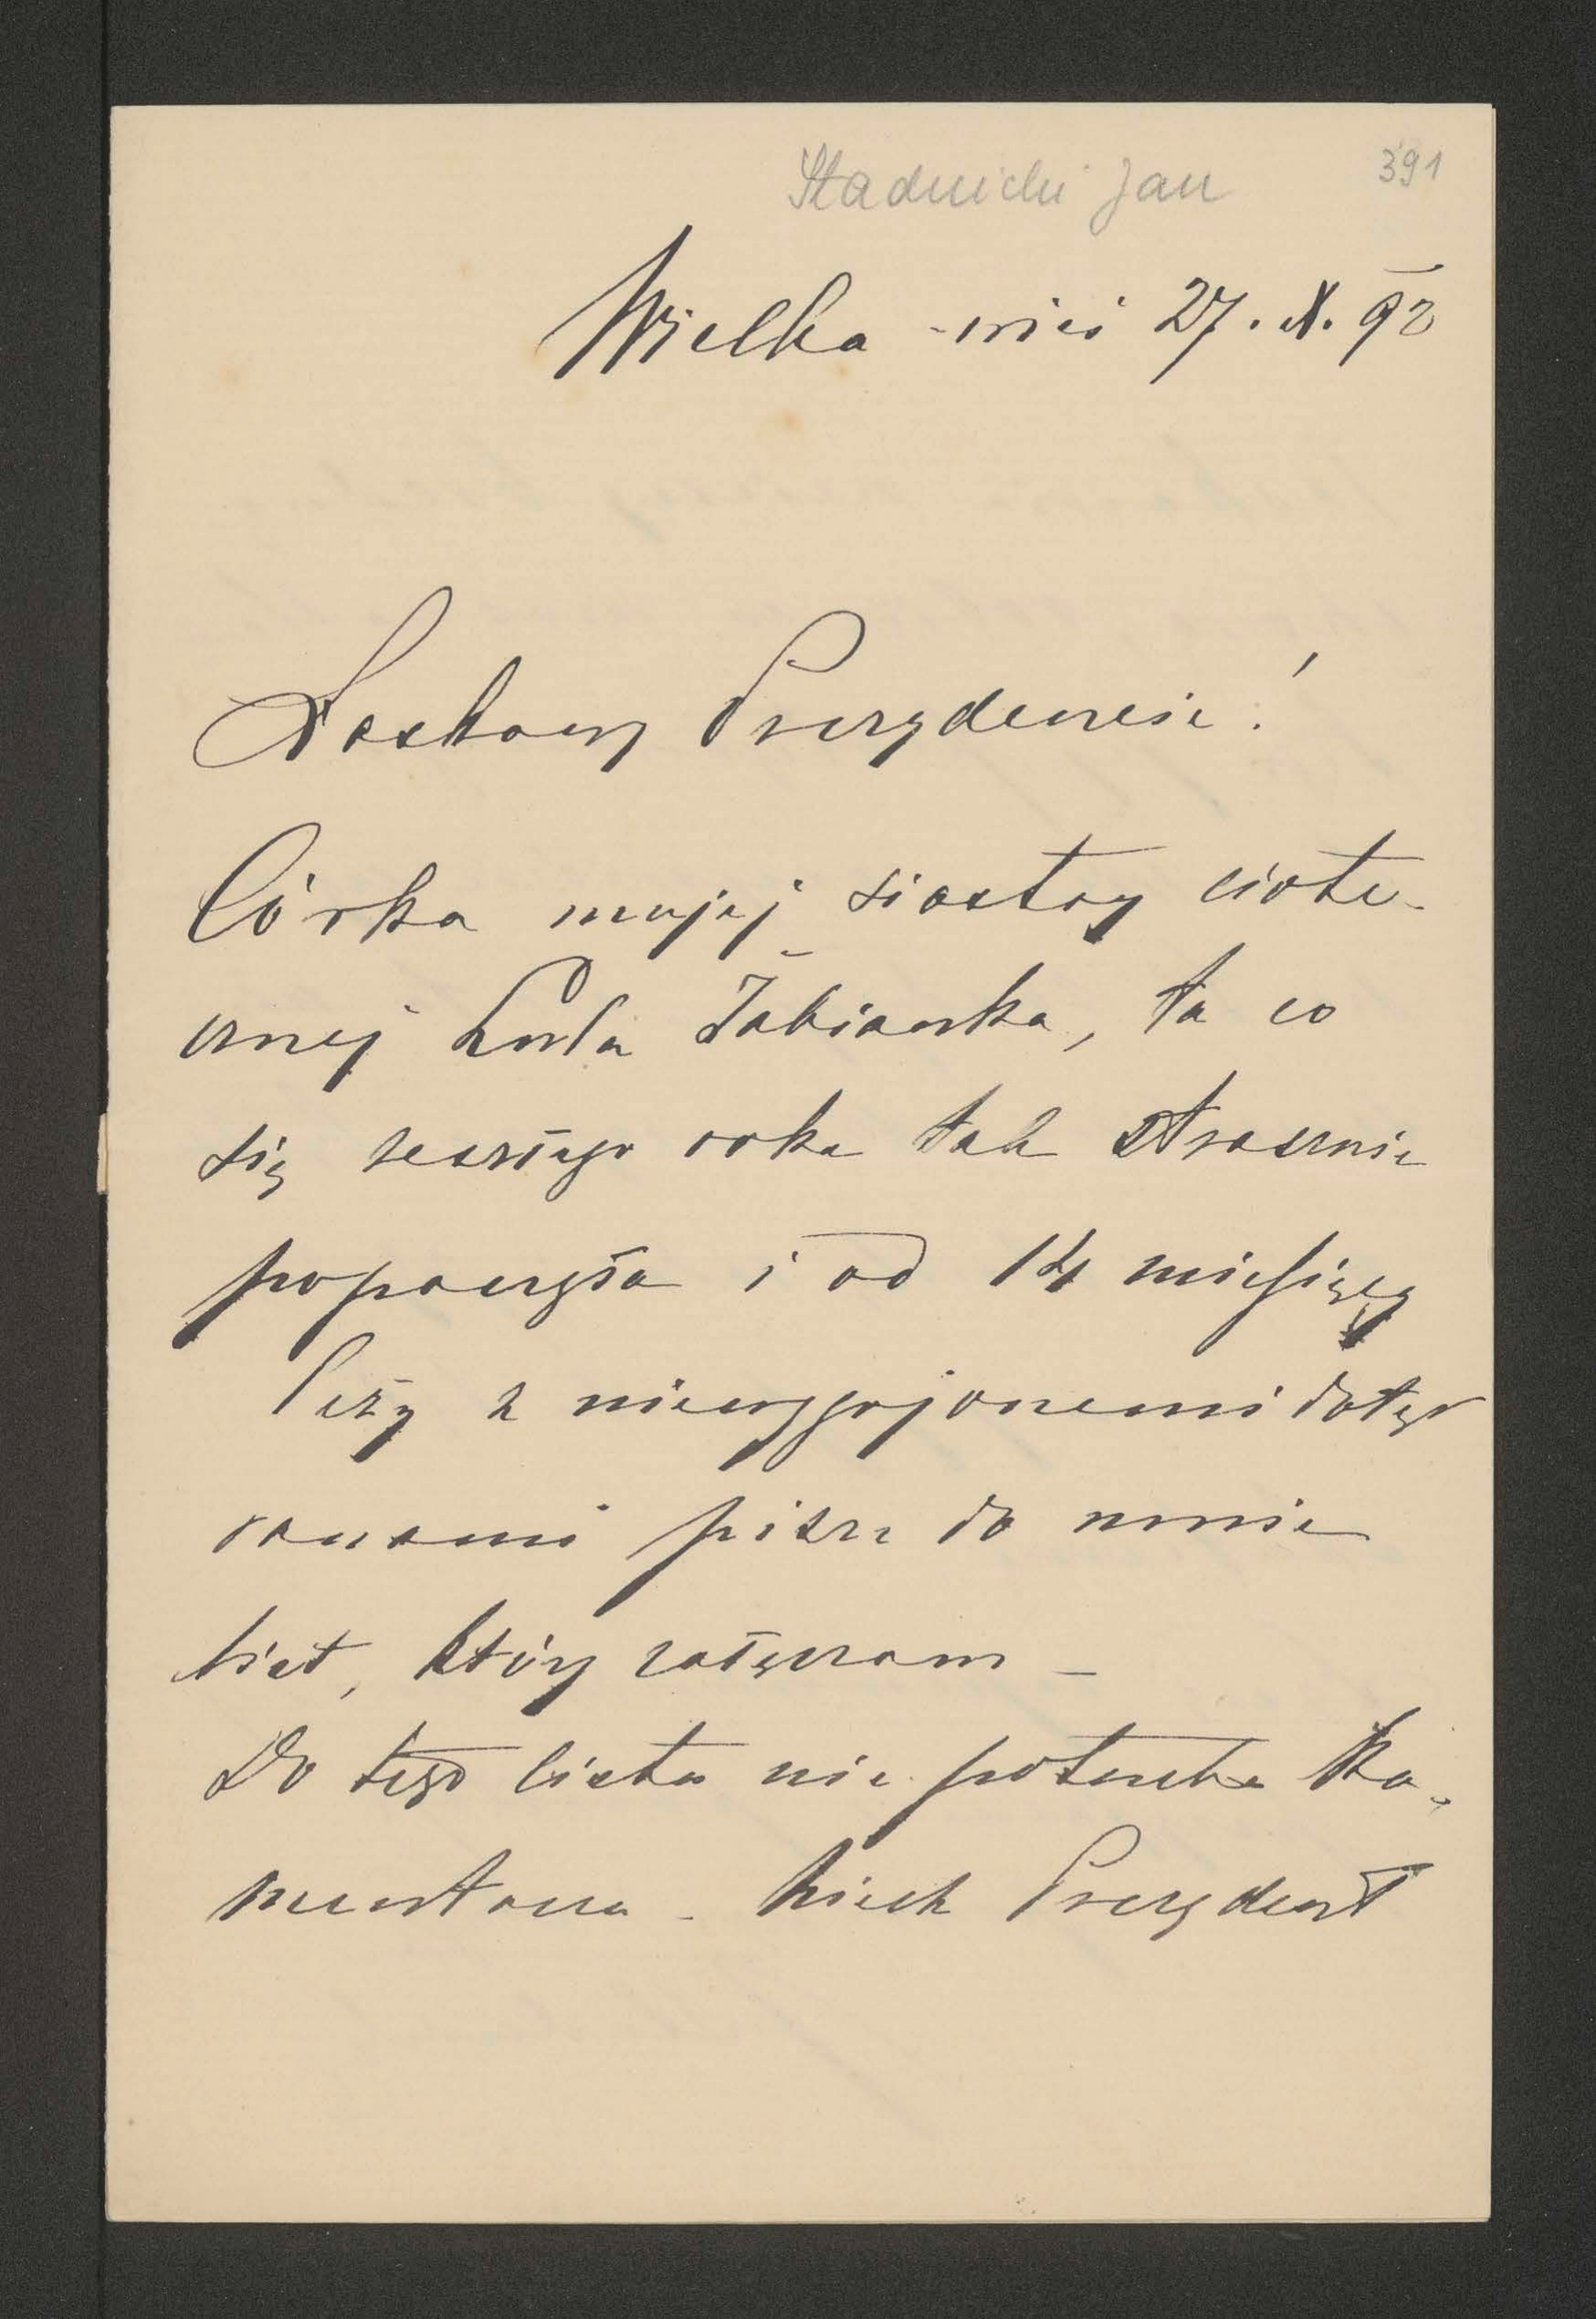 Stadnicki Jan 391
Wielka-wieś 27. X. 92
Łaskawy Prezydencie!
Córka mojej siostry ciote-
cznej Lola Żabianka, ta co
się zeszłego roku tak strasznie
poparzyła i od 14 miesięcy
leży z niewygojonemi dotąd
ranami pisze do mnie
list, który załączam –
Do tego listu nie potrzeba ko-
mentarza. Niech Prezydent